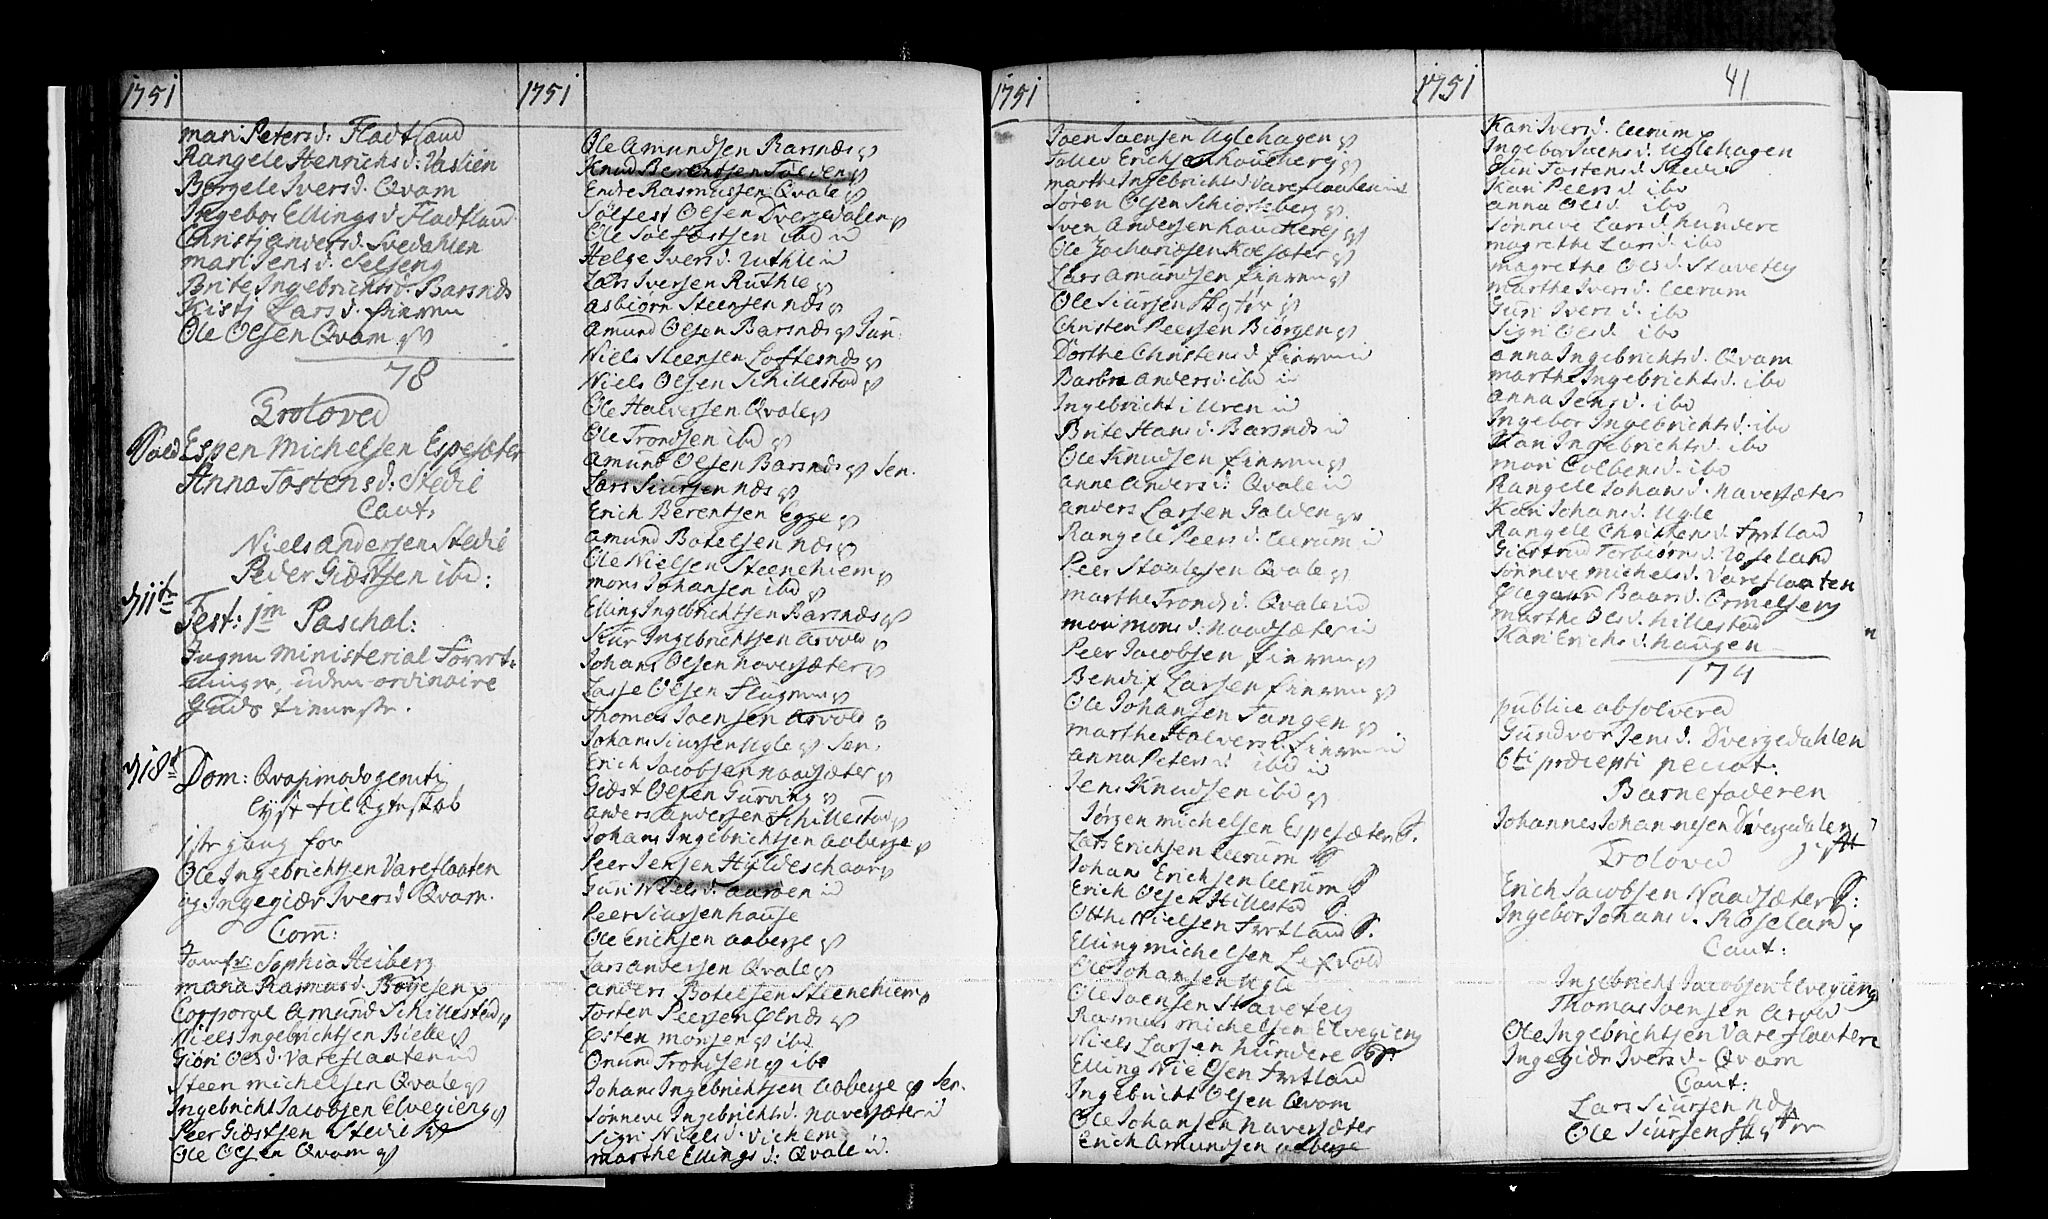 1751
Mari Petersd. Fladtland
Rangele Henrichsd. Vaslien
Børgele Iversd. Qvam
Ingebor Ellingsd Fladtland
Christj Andersd. Svedahlen
Mari Jensd. Selseng
Brite Ingebrichtsd. Barsnæs
Kistj Larsd. Finnen
Ole Olsen Qvam
78
Troloved
Espen Michelsen Espesæter
Anna Tostensd. Stedie
Caut:
Niels Andersen Stedie
Peder Giæstsen ibd:
d 11te
Fest: 1m Paschal:
Ingen Ministerial Forret-
ninger, uden ordinaire
Guds tieneste.
d 18de
Dom: Qvasimodogeniti
lyst til Egteskab
1ste gang for
Ole Ingebrichtsen Vareflaaten
og Ingegiær Iversd Qvam.
Com:
Jomfr: Sophia Heiberg
Maria Rasmusd. Bøyesen
Corporal Amund Schillestad
Niels Ingebrichtsen Bielle
Giøri Olsd. Vareflaaten
Steen Michelsen Qvale
Ingebricht Jacobsen Elvegieng
Peer Giæstsen Stedie
Ole Olsen Qvam
1751
Ole Amundsen Barsnæs
Knud Berentsen
Endre Rasmussen Qvale
Sølfest Olsen Dvergedalen
Ole Sølfæstsen ibd
Helge Iversd. Ruthle
Lars Iversen Ruthle
Asbiørn Steensen Næs
Amund Olsen Barsnæs Jun:
Niels Steensen Loftesnæs
Niels Olsen Schillestad
Ole Halversen Qvale
Ole Trondsen ibd
Amund Olsen Barsnæs Sen.
Lars Siursen Næs
Erich Berentsen Egge
Amund Botelsen Næs
Ole Nielsen Steenehiem
Mons Johansen ibd
Elling Ingebrichtsen Barsnæs
Siur Ingebrichtsen Arvold
Johans Olsen Naversæter
Lasse Olsen Flugem
Thomas Joensen Arvold
Johans Siursen Ugle Sen.
Erich Jacobsen Naadsæter
Giæst Olsen Gurvin
Anders Andersen Schillestad
Johans Ingebrichtsen Aaberge
Peer Jensen Huldeschaar
Guri Nielsd. Aarøen
Peer Siursen Hauge
Ole Erichsen Aaberge
Lars Andersen Qvale
Anders Botelsen Steenehiem
Tosten Peersen Ølnæs
Esten Monsen ibd
Onund Trondsen ibd
Johans Ingebrichtsen Aaberge Sen.
Sønneve Ingebrichtsd. Naversæter
Sigri Nielsd. Vichem
Marthe Ellingsd: Qvale
1751
Joen Joensen Uglehagen
Tollev Erichsen
Marthe Ingebrichtsd Vareflaaten
Søren Olsen
Sven Andersen
Ole Zachariæsen Kolsæter
Lars Amundsen Finnen
Ole Siursen
Christen Peersen Biørgen
Dorthe Christensd. Finnen
Barbra Andersd. ibd
Ingebricht i Uren
Brite Hansd. Barsnæs
Ole Knudsen Finnen
Anne Andersd: Qvale
Anders Larsen Galden
Rangele Peersd. Leerum
Peer Staalesen Qvale
Marthe Trondsd. Qvale
Mari Monsd: Naadsæter
Peer Jacobsen Finnen
Bendix Larsen Finnen
Ole Johansen Tangen
Marthe Halversd. Finnen
Anna Petersd. ibd
Jens Knudsen ibd
Jørgen Michelsen Espesæter
Lars Erichsen Leerum
Johans Erichsen Leerum
Erich Olsen Hillestad
Otthe Nielsen Frttland
Elling Michelsen
Ole Johansen Ugle
Ole Joensen Stavetey
Rasmus Michelsen Elvegieng
Niels Larsen Hundere
Elling Nielsen Frttland
Ingebricht Olsen Qvam
Ole Johansen Naversæter
Erich Amundsen Aaberge
1751
41
Kari Iversd. Leerum
Ingebor Svensd. Uglehagen
Guri Tostensd. Stedie
Kari Peersd ibd
Anna Olsd. ibd
Sønneve Larsd. Hundere
Magrethe Larsd. ibd
Magrethe Olsd. Stavetey
Marthe Iversd. Leerum
Guri Iversd. ibd
Sigri Olsd. ibd
Anna Ingebrichtsd. Qvam
Marthe Ingebrichtsd. ibd
Anna Jensd. ibd
Ingebor Ingebrichtsd. ibd
Kari Ingebrichtsd. ibd
Mari Colbensd. ibd
Rangele Johansd. Naversæter
Kari Johansd. Ugle
Rangele Christensd. Frttland
Giertrud Torbiørnsd. Røseland
Sønneve Michelsd. Vareflaaten
Baarsd. Ormelseng
Marthe Olsd. Hillestad
Kari Erichsd. Haugen
174
publice absolvered
Gundvor Jensd. Dvergedahlen
6ti præcepti peccat:
Barnefaderen
Johannes Johannesen Dvergedalen
Troloved
Erich Jacobsen Naadsæter
Ingebor Johansd. Røseland
Caut:
Ingebricht Jacobsen Elvegieng
Thomas Joensen Arvold
Ole Ingebrichtsen Vareflaaten
Ingegiær Iversd. Qvam
Caut:
Lars Siursen Næs
Ole Siursen